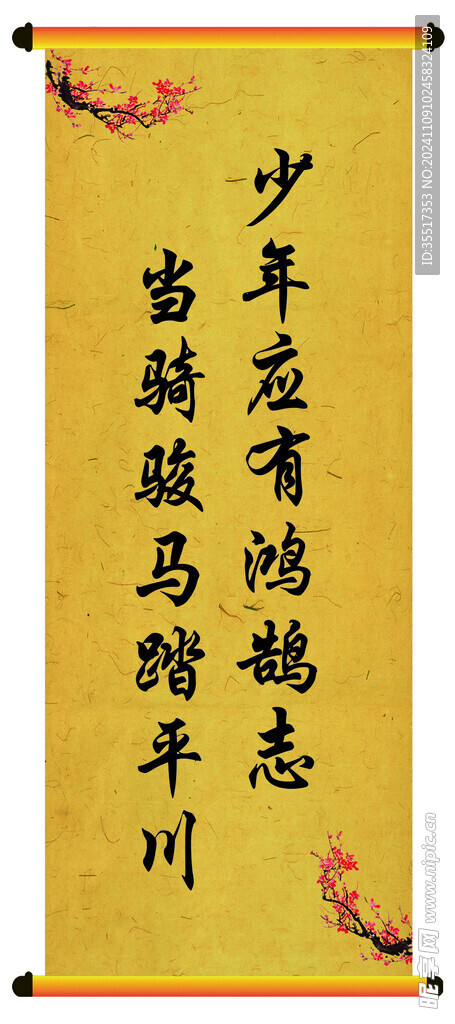 少年应有鸿鹄志
当骑骏马踏平川
ID:35517353 NO:20241109102458324109
昵享网 www.nipic.cn